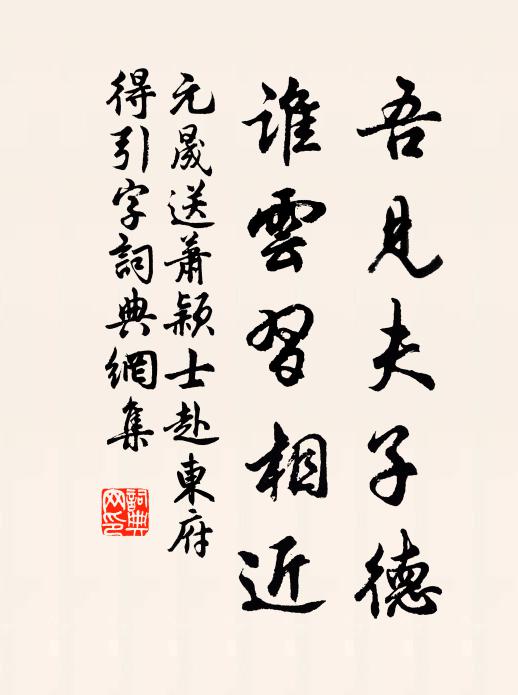 吾見夫子德
誰雲習相近
元晟送蕭穎士赴東府
得引字詞典網集
詞典
网印